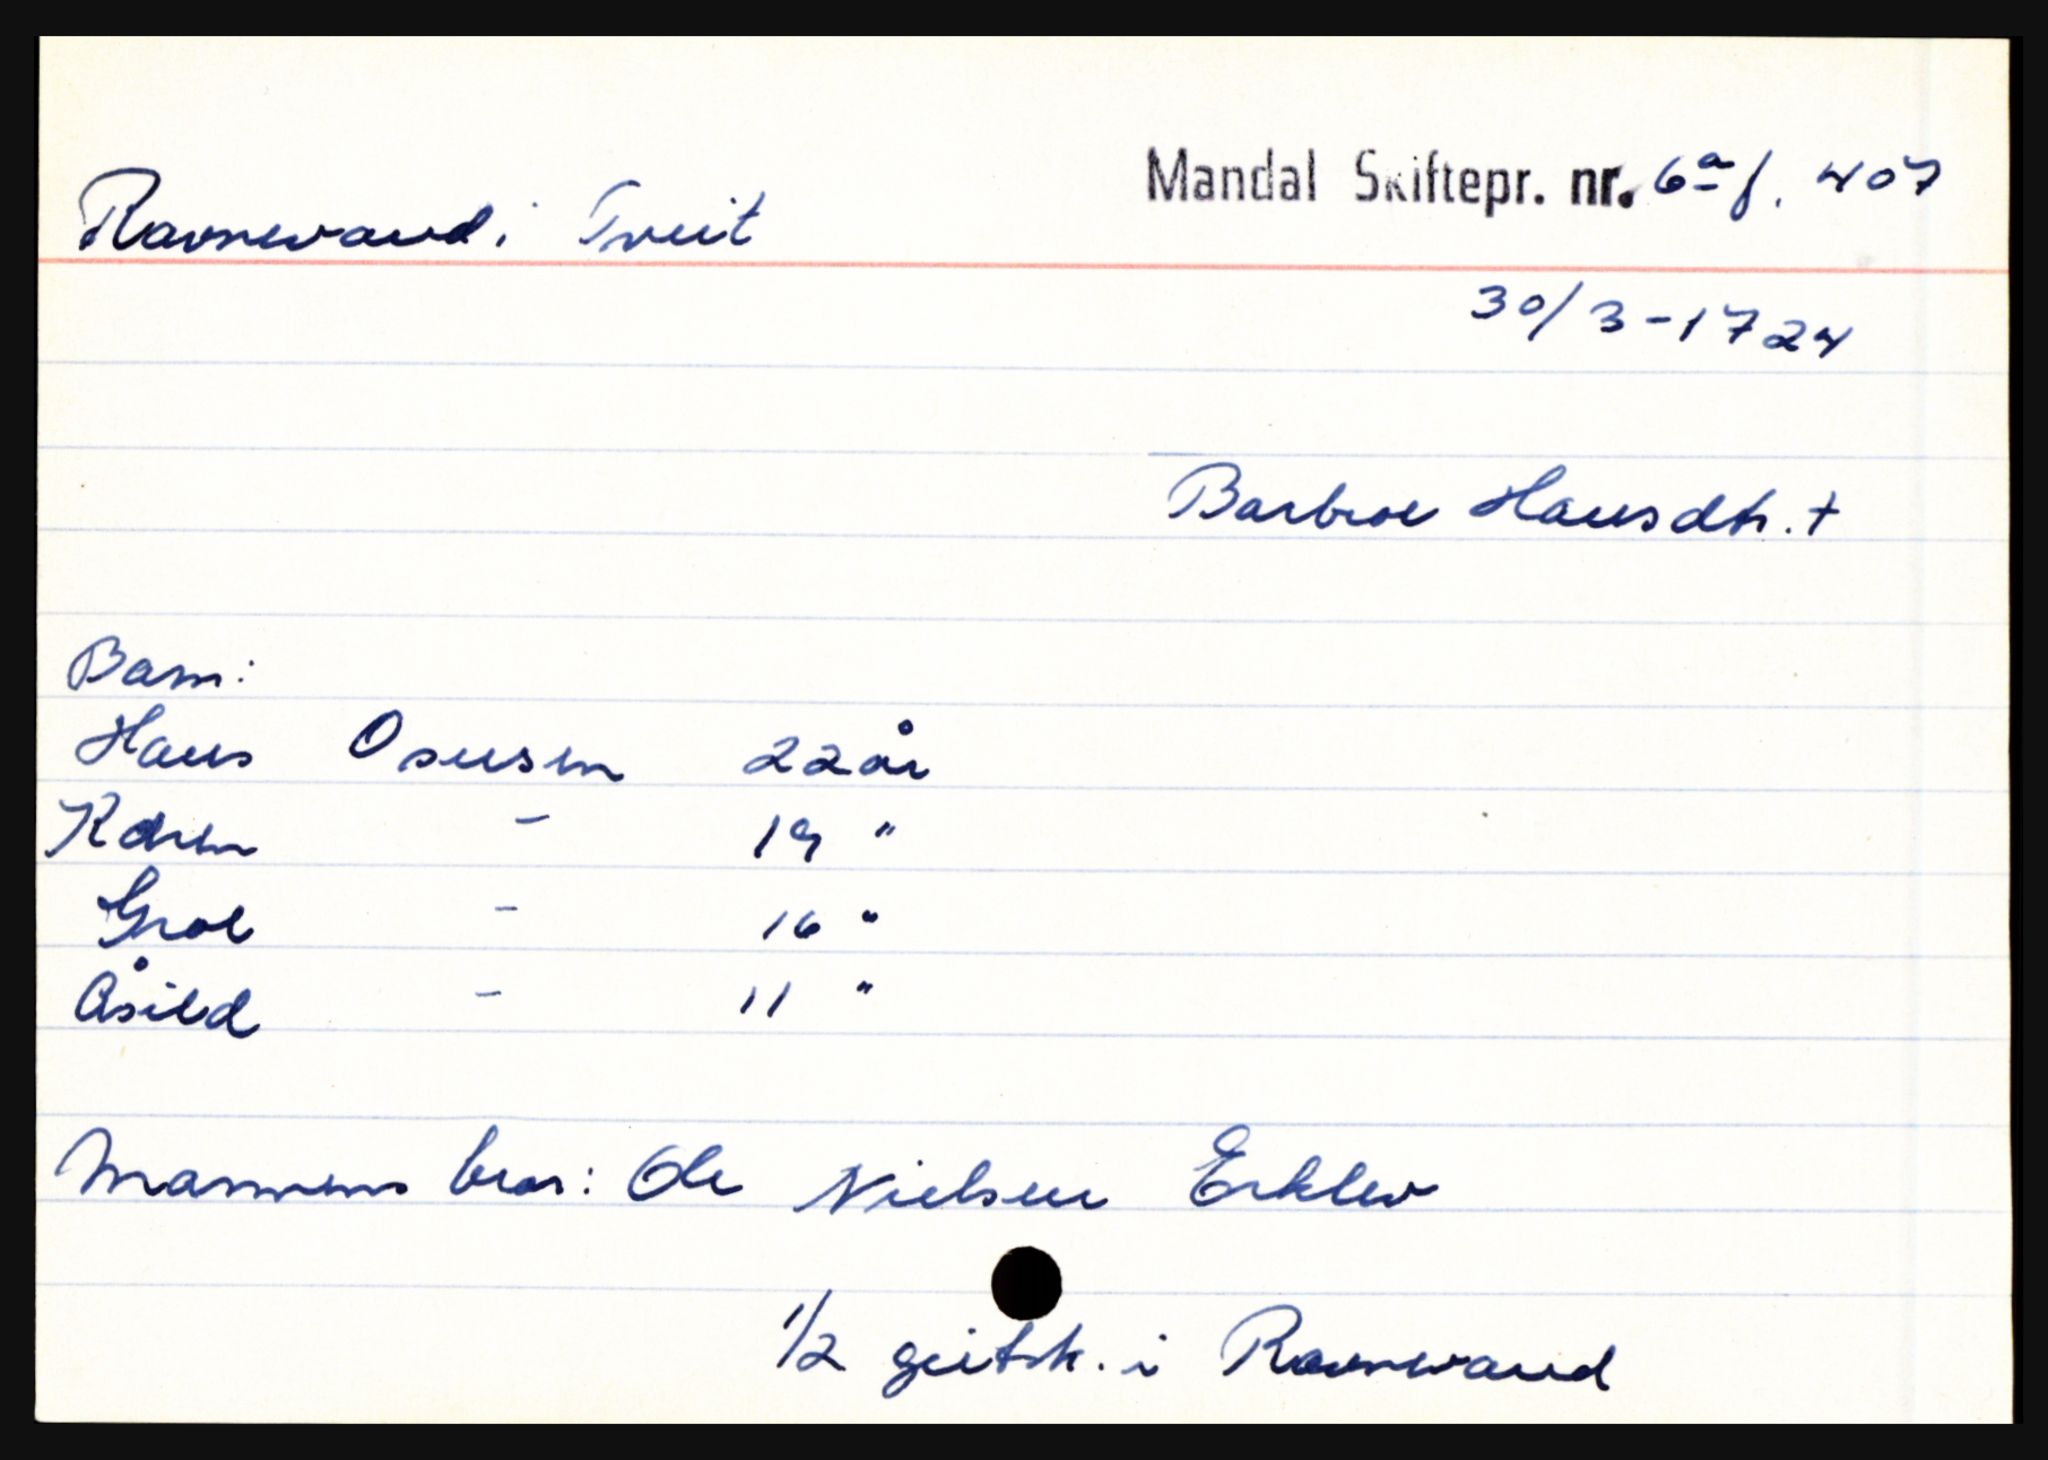 Mandal Skiftepr. nr. 6a f. 407
Ravnevand i Tveit
30/3-1724
Barbroe Hansdtr. +
Barn:
Hans Osusen 22 år
Karen - 19 "
Groe - 16 "
Åsild - 11 "
Mannens bror: Ole Nielsen Erklev
1/2 geitsk. i Ravnevand